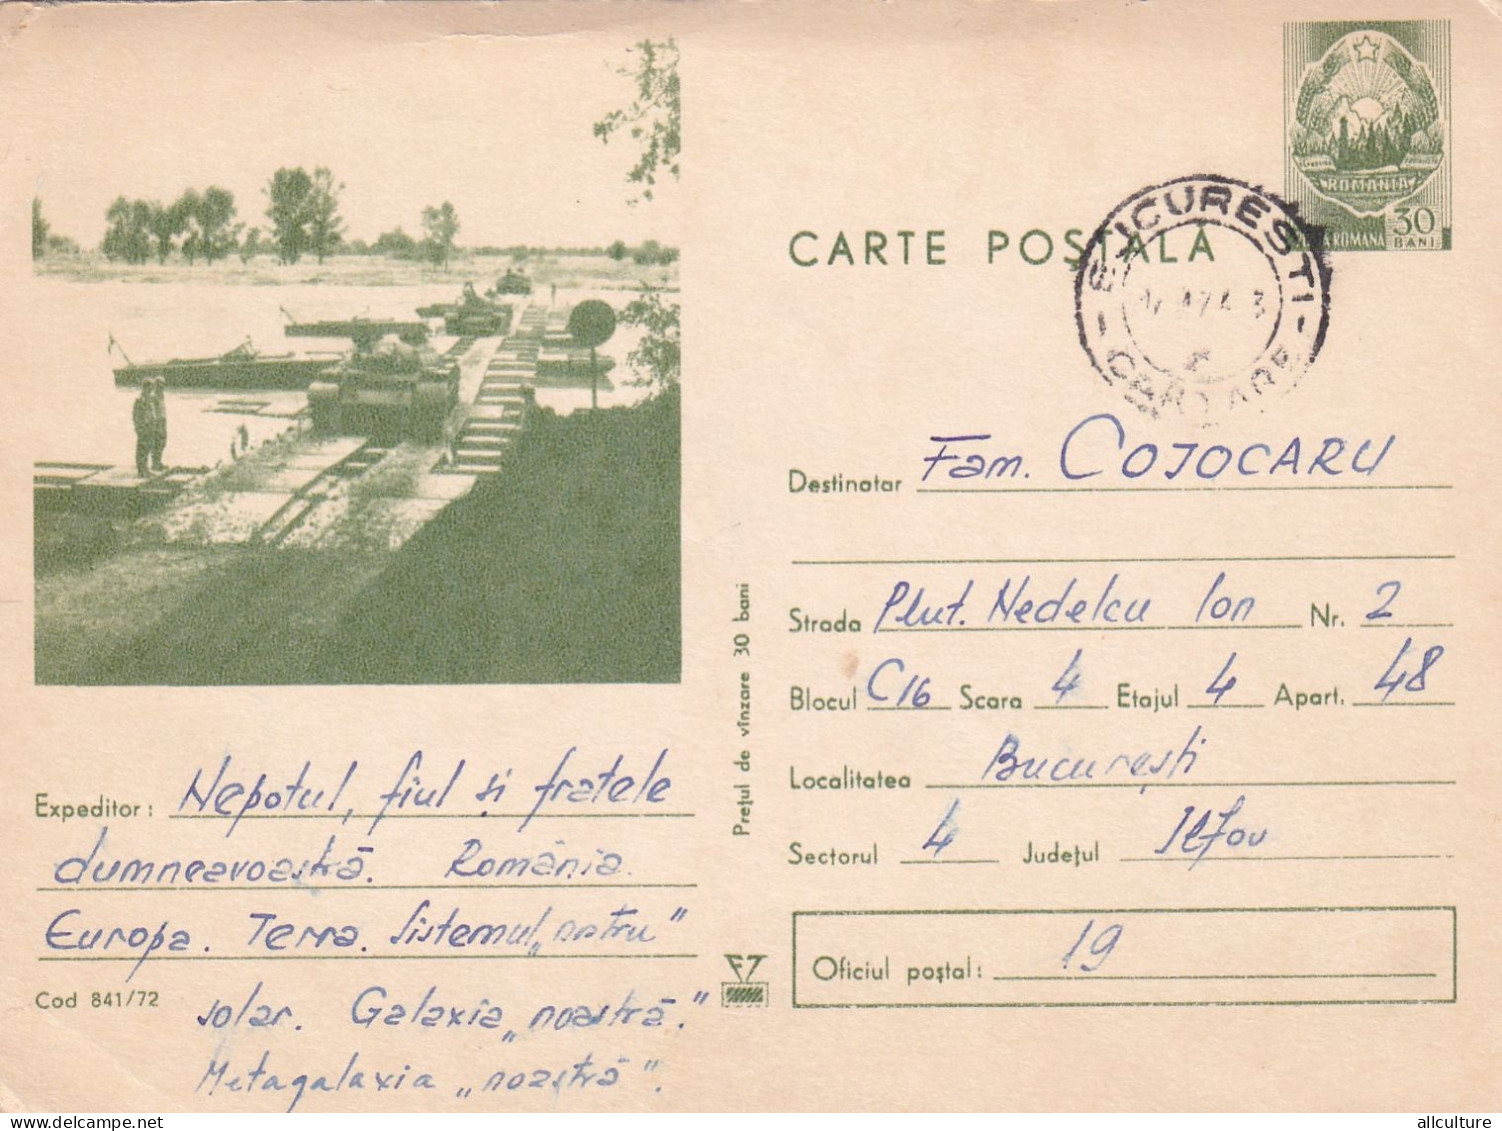 ROMANIA
POSTA ROMANA 30 BANI
CARTE POȘTALĂ
BUCURESTI
CARTARE
Destinatar Fam. COJOCARU
Strada Plut. Nedelcu Ion Nr. 2
Blocul C16 Scara 4 Etajul 4 Apart. 48
Localitatea București
Sectorul 4 Județul Ilfov
Oficiul poștal: 19
Prețul de vînzare 30 bani
Expeditor: Nepotul, fiul și fratele
dumneavoastră. România.
Europa. Terra. Sistemul „nostru”
solar. Galaxia „noastră.”
Metagalaxia „noastră”.
Cod 841/72
allculture